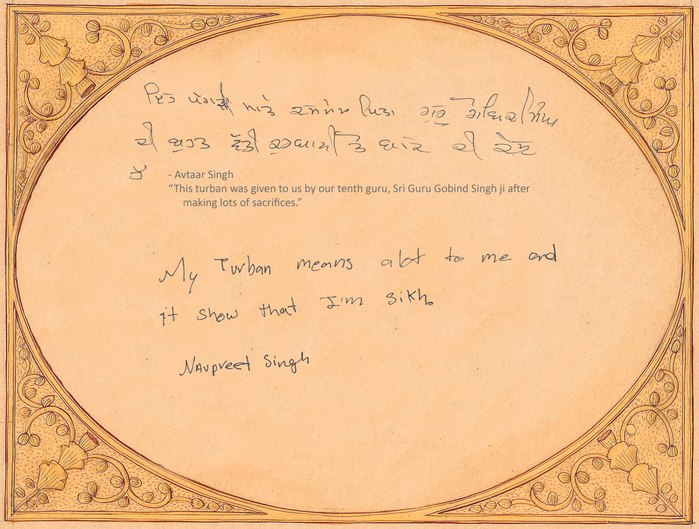 ਇਹ ਦਸਮੇਸ ਪਿਤਾ ਗੁਰੂ
ਦੀ ਬਹੁਤ ਵੱਡੀ ਦੀ ਦੇਣ
ਹੈ
- Avtaar Singh
“This turban was given to us by our tenth guru, Sri Guru Gobind Singh ji after
making lots of sacrifices.”
My Turban means alot to me and
it show that I'm sikh.
Navpreet Singh